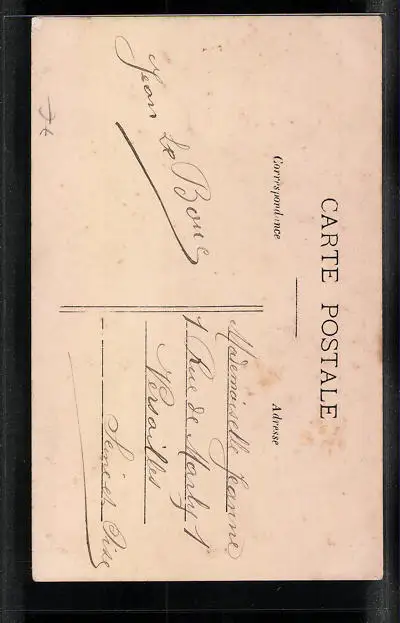 CARTE POSTALE
Correspondance
Adresse
Jean Le Bouc
Mademoiselle Jeanne
1 Rue de Marly 1
Versailles
Seine et Oise